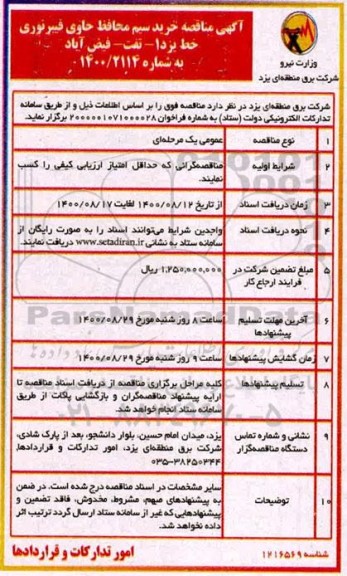 آگهی مناقصه خرید سیم محافظ حاوی فیبرنوری
خط یزد۱- تفت- فیض آباد
به شماره ۱۴۰۰/۲۱۱۴
وزارت نیرو
شرکت برق منطقه‌ای یزد
شرکت برق منطقه‌ای یزد در نظر دارد مناقصه فوق را بر اساس اطلاعات ذیل و از طریق سامانه
تدارکات الکترونیکی دولت (ستاد) به شماره فراخوان ۲۰۰۰۰۰۱۰۷۱۰۰۰۰۲۸ برگزار نماید.
۱ نوع مناقصه عمومی یک مرحله‌ای
۲ شرایط اولیه مناقصه‌گرانی که حداقل امتیاز ارزیابی کیفی را کسب
نمایند.
۳ زمان دریافت اسناد از تاریخ ۱۴۰۰/۰۸/۱۲ لغایت ۱۴۰۰/۰۸/۱۷
۴ نحوه دریافت اسناد واجدین شرایط می‌توانند اسناد را به صورت رایگان از
سامانه ستاد به نشانی www.setadiran.ir دریافت نمایند.
۵ مبلغ تضمین شرکت در
فرایند ارجاع کار ۱,۲۵۰,۰۰۰,۰۰۰ ریال
۶ آخرین مهلت تسلیم
پیشنهادها ساعت ۸ روز شنبه مورخ ۱۴۰۰/۰۸/۲۹
۷ زمان گشایش پیشنهادها ساعت ۹ روز شنبه مورخ ۱۴۰۰/۰۸/۲۹
۸ تسلیم پیشنهادها کلیه مراحل برگزاری مناقصه از دریافت اسناد مناقصه تا
ارایه پیشنهاد مناقصه‌گران و بازگشایی پاکات از طریق
سامانه ستاد انجام خواهد شد.
۹ نشانی و شماره تماس
دستگاه مناقصه‌گزار یزد، میدان امام حسین، بلوار دانشجو، بعد از پارک شادی،
شرکت برق منطقه‌ای یزد، امور تدارکات و قراردادها،
۰۳۵-۳۸۲۵۰۳۴۴
۱۰ توضیحات سایر مشخصات در اسناد مناقصه درج شده است. در ضمن
به پیشنهادهای مبهم، مشروط، مخدوش، فاقد تضمین و
پیشنهادهایی که غیر از سامانه ستاد ارسال گردد ترتیب اثر
داده نخواهد شد.
شناسه ۱۲۱۶۵۶۹
امور تدارکات و قراردادها